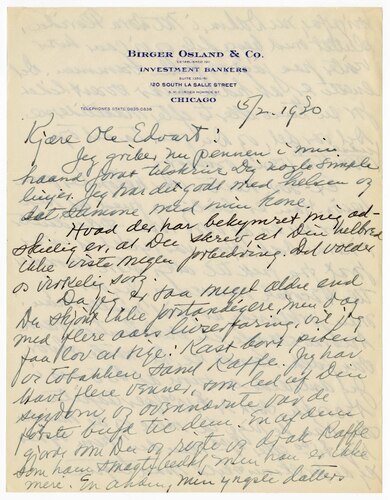 BIRGER OSLAND & CO.
ESTABLISHED 1911
INVESTMENT BANKERS
120 SOUTH LA SALLE STREET
CHICAGO
TELEPHONES STATE 0635-0636
15/2. 1930
Kjære Ole Edvart!
Jeg griber nu pennen i min
haand for at tilskrive Dig nogle simple
linjer. Jeg har det godt med helsen og
det samme med min Kone.
Hvad der har bekymret mig ad-
skillig er, at Du skrev, at Din helbred
ikke viste megen forbedring. Det volder
os virkelig sorg.
Da jeg er saa meget ældre end
Du skjønt ikke forstandigere, men dog
med flere aars livserfaring, vil jeg
faa lov at sige: Kast bort piben
og tobakken samt Kaffe. Jeg har
havt flere venner, som led af Din
sygdom, og ovennævnte var de
første bud til dem. En af dem
gjorde som Du og røgte og drak Kaffe
som ham smagte bedst, men han er ikke
mere. En anden, min yngste datters